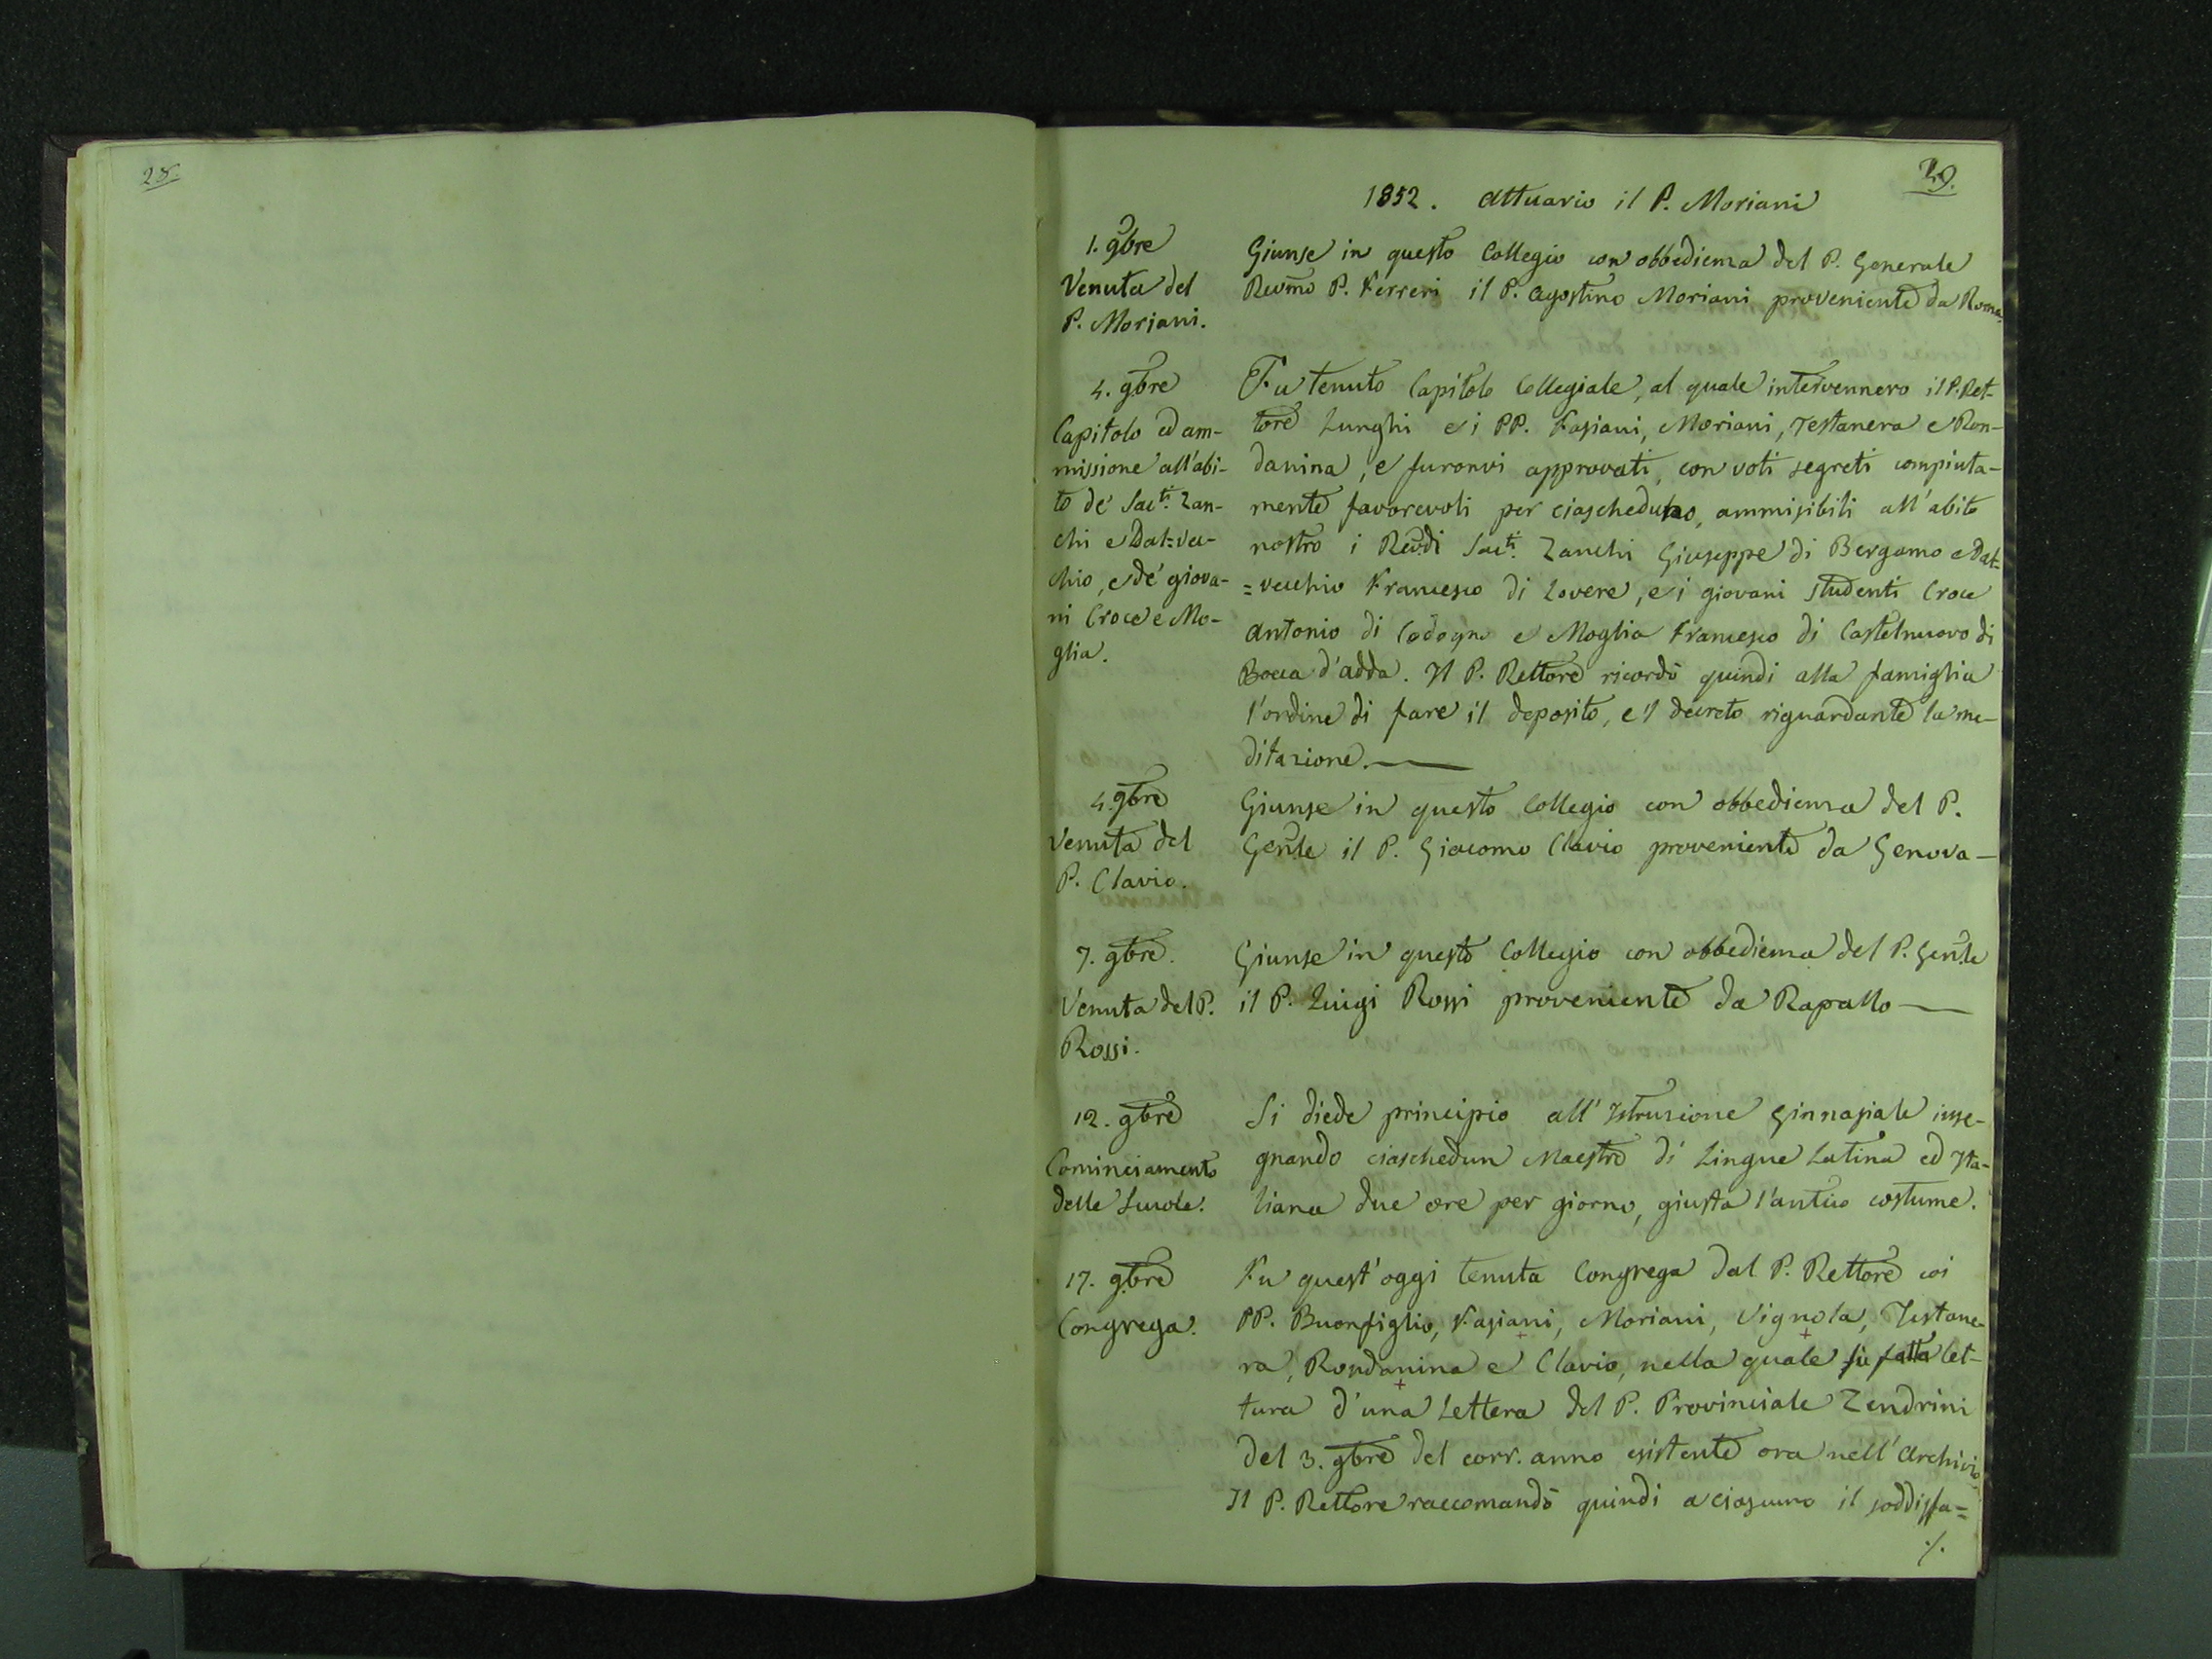 28.
29.
1852. Attuario il P. Moriani
1. 9bre
Venuta del
P. Moriani.
Giunse in questo Collegio con obbedienza del P. Generale
Revmo P. Ferreri il P. Agostino Moriani proveniente da Roma.
4. 9bre
Capitolo ed am-
missione all'abi-
to de' Sacti. Zan-
chi e Dal=Vec-
chio, e de' giova-
ni Croce e Mo-
glia.
Fu tenuto Capitolo Collegiale, al quale intervennero il P. Ret-
tore Lunghi e i PP. Fasiani, Moriani, Testanera e Ron-
danina, e furonvi approvati, con voti segreti compiuta-
mente favorevoli per ciascheduno, ammisibili all'abito
nostro i Revdi Sacti. Zanchi Giuseppe di Bergamo e Dal=
=vecchio Francesco di Lovere, e i giovani studenti Croce
Antonio di Codogno e Moglia Francesco di Castelnuovo di
Bocca d'Adda. Il P. Rettore ricordò quindi alla famiglia
l'ordine di fare il deposito, e 'l decreto riguardante la me-
ditazione.
4. 9bre
Venuta del
P. Clavio.
Giunse in questo Collegio con obbedienza del P.
Genle il P. Giacomo Clavio proveniente da Genova—
7. 9bre.
Venuta del P.
Rossi.
Giunse in questo Collegio con obbedienza del P. Genle
il P. Luigi Rossi proveniente da Rapallo—
12. 9bre
Cominciamento
delle Scuole.
Si diede principio all'Istruzione Ginnasiale inse-
gnando ciaschedun Maestro di Lingue Latina ed Ita-
liana due ore per giorno, giusta l'antico costume.
17. 9bre
Congrega.
Fu quest'oggi tenuta Congrega dal P. Rettore coi
PP. Buonfiglio, Fasiani, Moriani, Vignola, Testane-
ra, Rondanina e Clavio, nella quale fu fatta let-
tura d'una Lettera del P. Provinciale Zendrini
del 3. 9bre del corr. anno esistente ora nell'Archivio.
Il P. Rettore raccomandò quindi a ciascuno il soddisfa=
./.